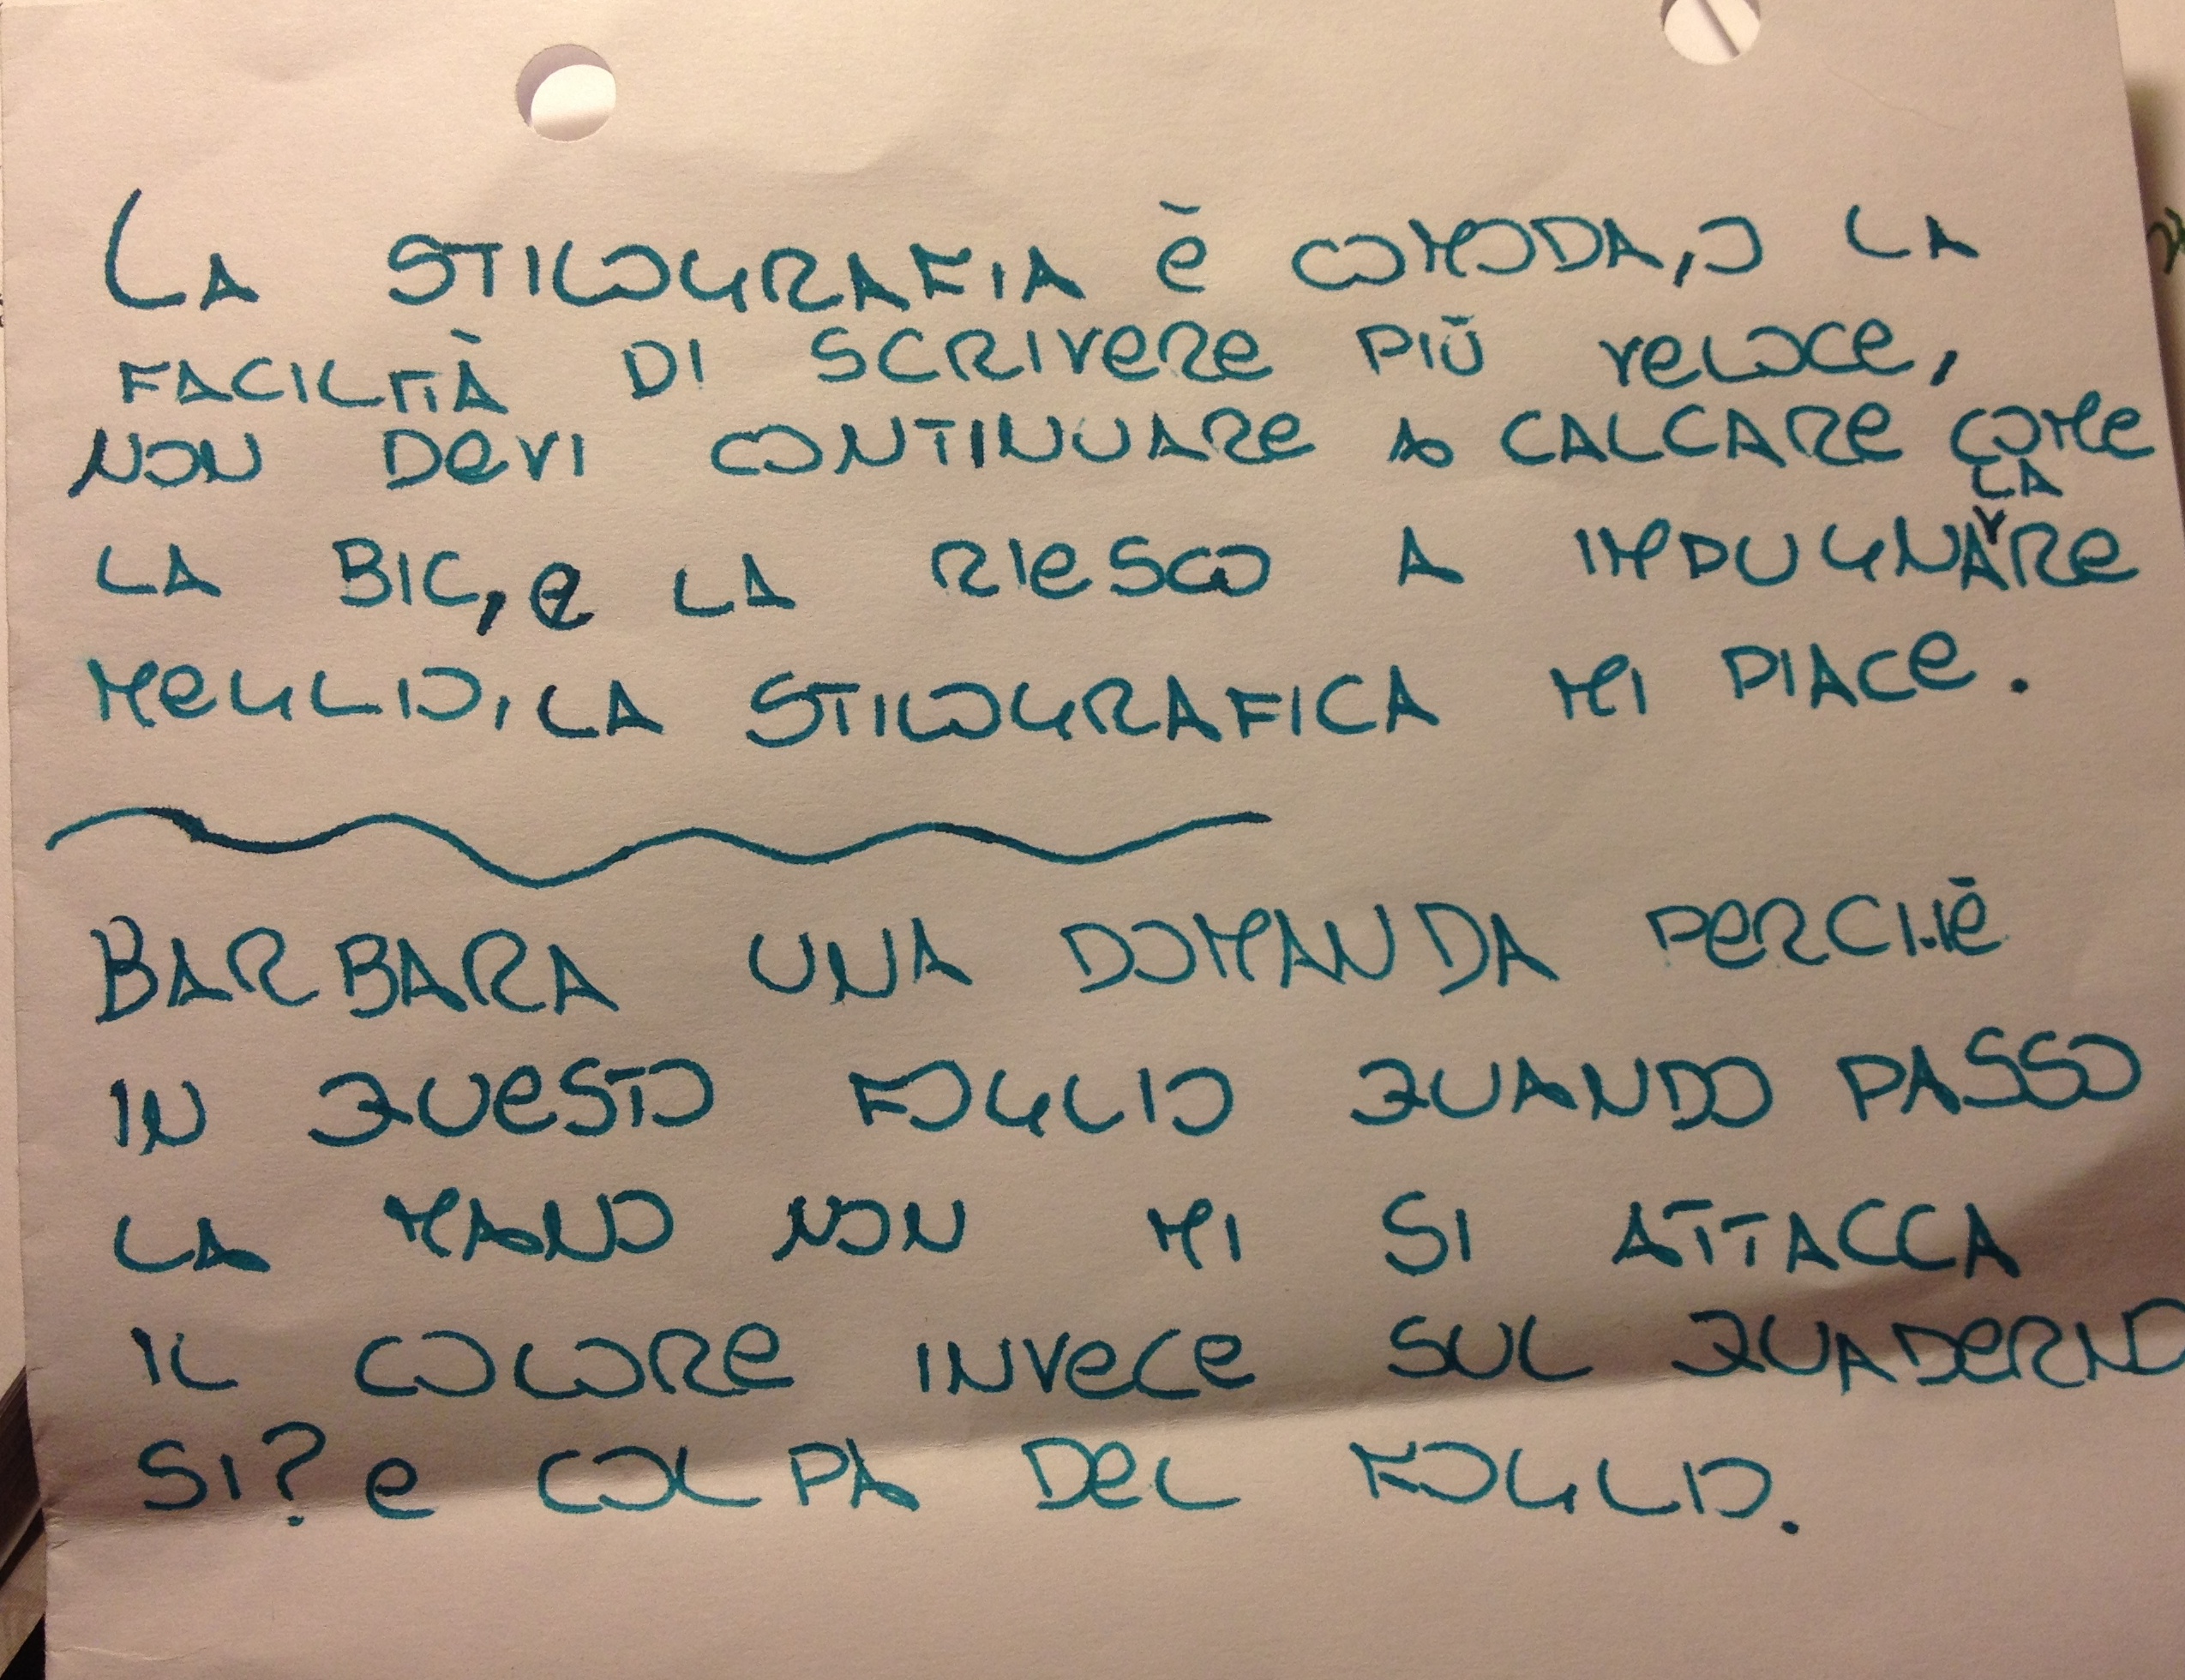 LA STILOGRAFIA è COMODA, O LA
FACILITÀ DI SCRIVERE PIÙ VELOCE,
NON DEVI CONTINUARE A CALCARE COME
LA
LA BIC, e LA RIESCO A IMPUGNARE
MEGLIO, LA STILOGRAFICA MI PIACE.
BARBARA UNA DOMANDA PERCHÈ
IN QUESTO FOGLIO QUANDO PASSO
LA MANO NON MI SI ATTACCA
IL COLORE INVECE SUL QUADERNO
SI? e COLPA DEL FOGLIO.